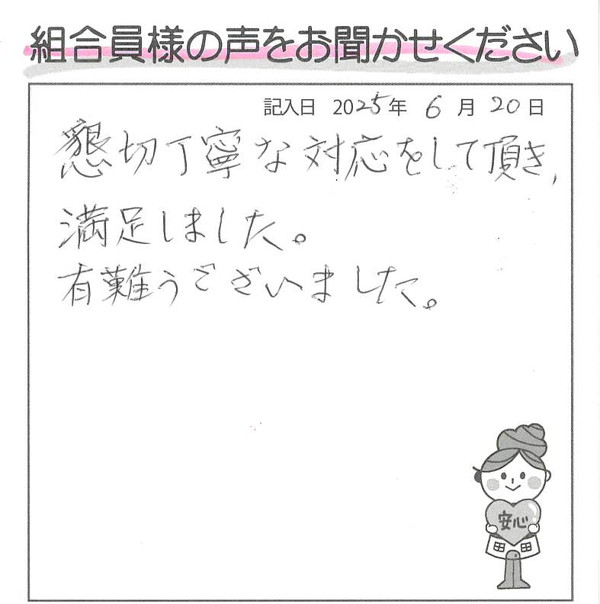 組合員様の声をお聞かせください
記入日 2025年 6月 20日
懇切丁寧な対応をして頂き、
満足しました。
有難うございました。
安心